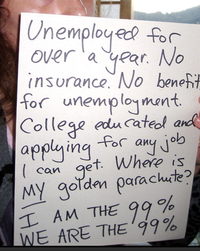 Unemployed for
over a year. No
insurance. No benefit
for unemployment.
College educated and
applying for any job
I can get. Where is
MY golden parachute?
I AM THE 99%
WE ARE THE 99%